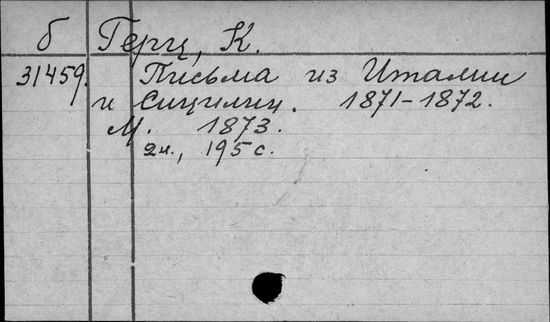 б Герц, К.
31459. Письма из Италии
и Сицилии. 1871-1872.
М. 1873.
2ч., 195 с.